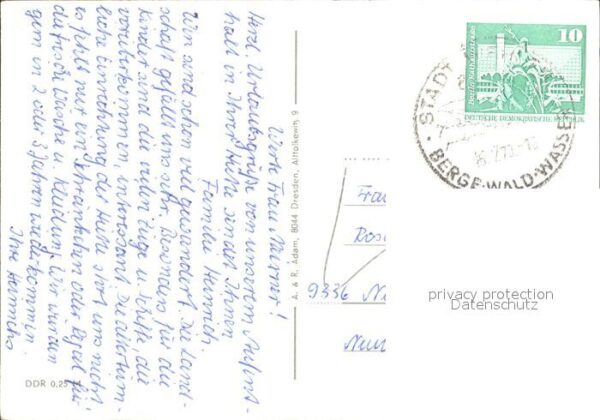 Werte Frau Nürner!
Herzl. Urlaubsgrüße von unserem Aufent-
halt in Ihrer Hütte sendet Ihnen
Familie Heinrich
Wir sind schon viel gewandert. Die Land-
schaft gefällt uns sehr. Besonders für die
Kinder sind die vielen Züge u. Schiffe, die
vorüberkommen, interessant. Die altertüm
liche Einrichtung der Hütte stört uns nicht.
Es fehlt nur ein Schränkchen oder Regal für
die frische Wäsche u. Kleidung. Wir würden
gern in 2 oder 3 Jahren wiederkommen
Ihre Heinrichs
DDR 0,25 M
A. & R. Adam, 8044 Dresden, Altfolkewitz 9
10
DEUTSCHE DEMOKRATISCHE REPUBLIK
STADT
BERGE-WALD-WASSE
Frau
Ros
9336
privacy protection
Datenschutz